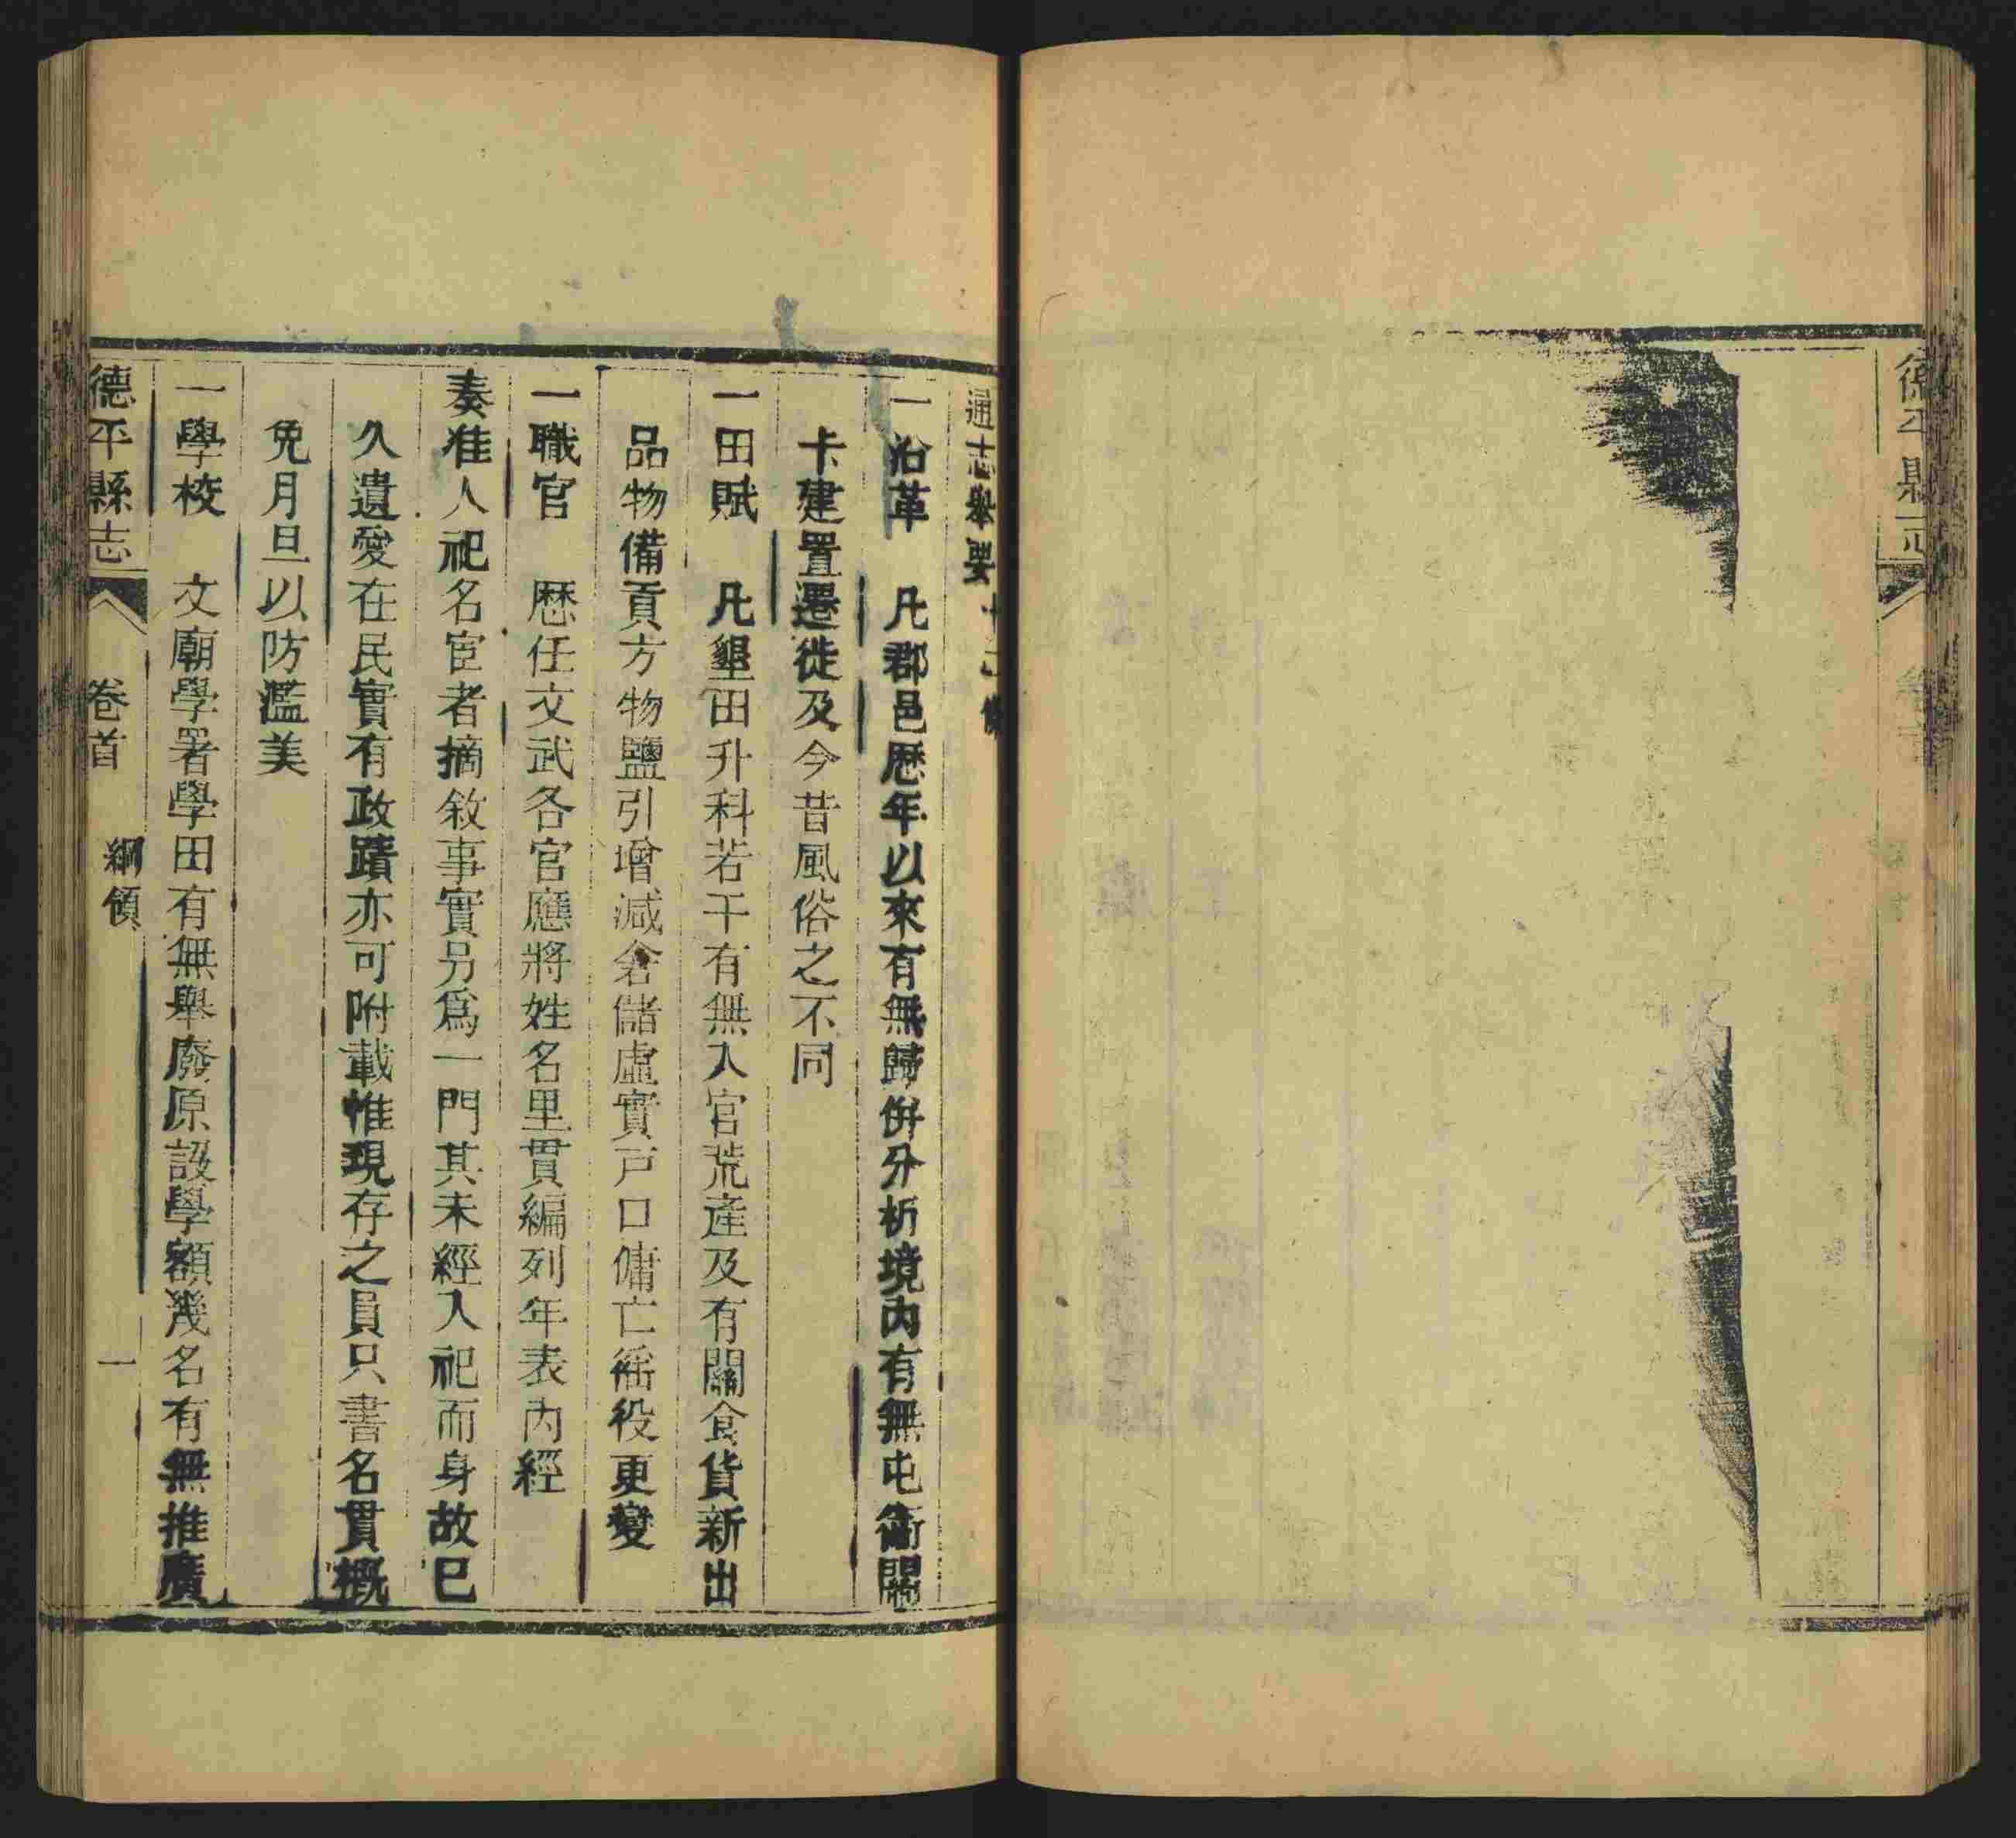 德平縣志
通志舉要十二條
一沿革　凡郡邑歷年以來有無歸併分析境內有無屯衞關
卡建置遷徙及今昔風俗之不同
一田賦　凡墾田升科若干有無入官荒產及有關食貨新出
品物備貢方物鹽引增減倉儲虛實戸口傭亡徭役更變
一職官　歷任文武各官應將姓名里貫編列年表內經
奏准人祀名宦者摘敘事實另爲一門其未經入祀而身故已
久遺愛在民實有政蹟亦可附載惟現存之員只書名貫概
免月旦以防濫美
一學校　文廟學署學田有無舉廢原設學額幾名有無推廣
德平縣志　卷首　綱領　一